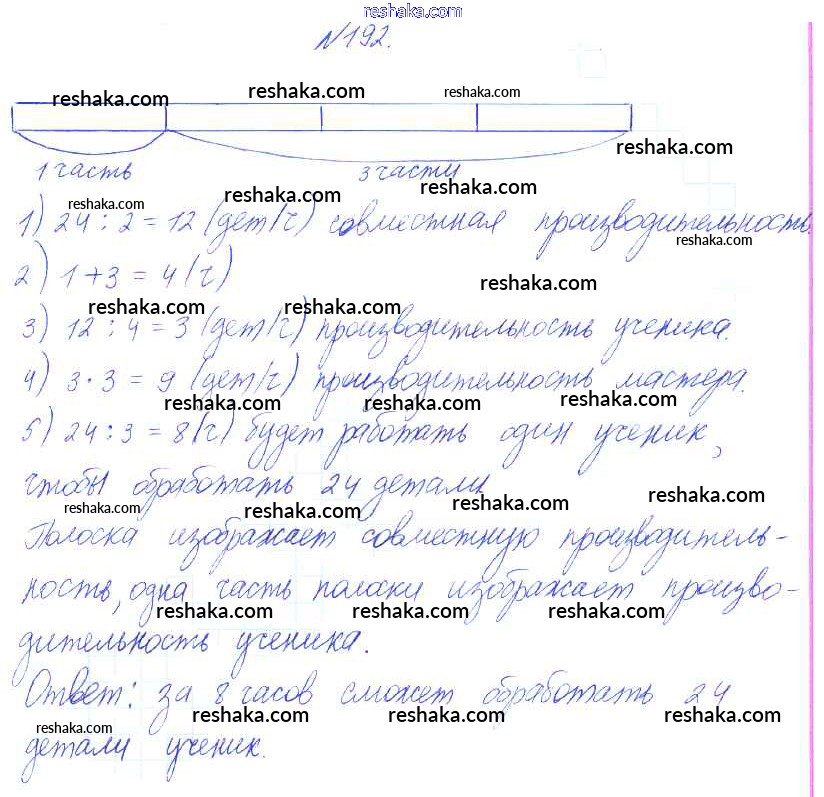 reshaka.com
№192.
reshaka.com reshaka.com reshaka.com
reshaka.com
1 часть 3 части
reshaka.com reshaka.com reshaka.com reshaka.com
1) 24 : 2 = 12 (дет/ч) совместная производительность.
reshaka.com
2) 1 + 3 = 4 (ч)
reshaka.com
reshaka.com reshaka.com reshaka.com
3) 12 : 4 = 3 (дет/ч) производительность ученика.
4) 3 · 3 = 9 (дет/ч) производительность мастера.
reshaka.com reshaka.com reshaka.com reshaka.com
5) 24 : 3 = 8 (ч) будет работать один ученик,
чтобы обработать 24 детали.
reshaka.com reshaka.com reshaka.com reshaka.com
Полоска изображает совместную производитель-
ность, одна часть полоски изображает произво-
reshaka.com reshaka.com reshaka.com
дительность ученика.
Ответ: за 8 часов сможет обработать 24
reshaka.com reshaka.com reshaka.com reshaka.com
детали ученик.